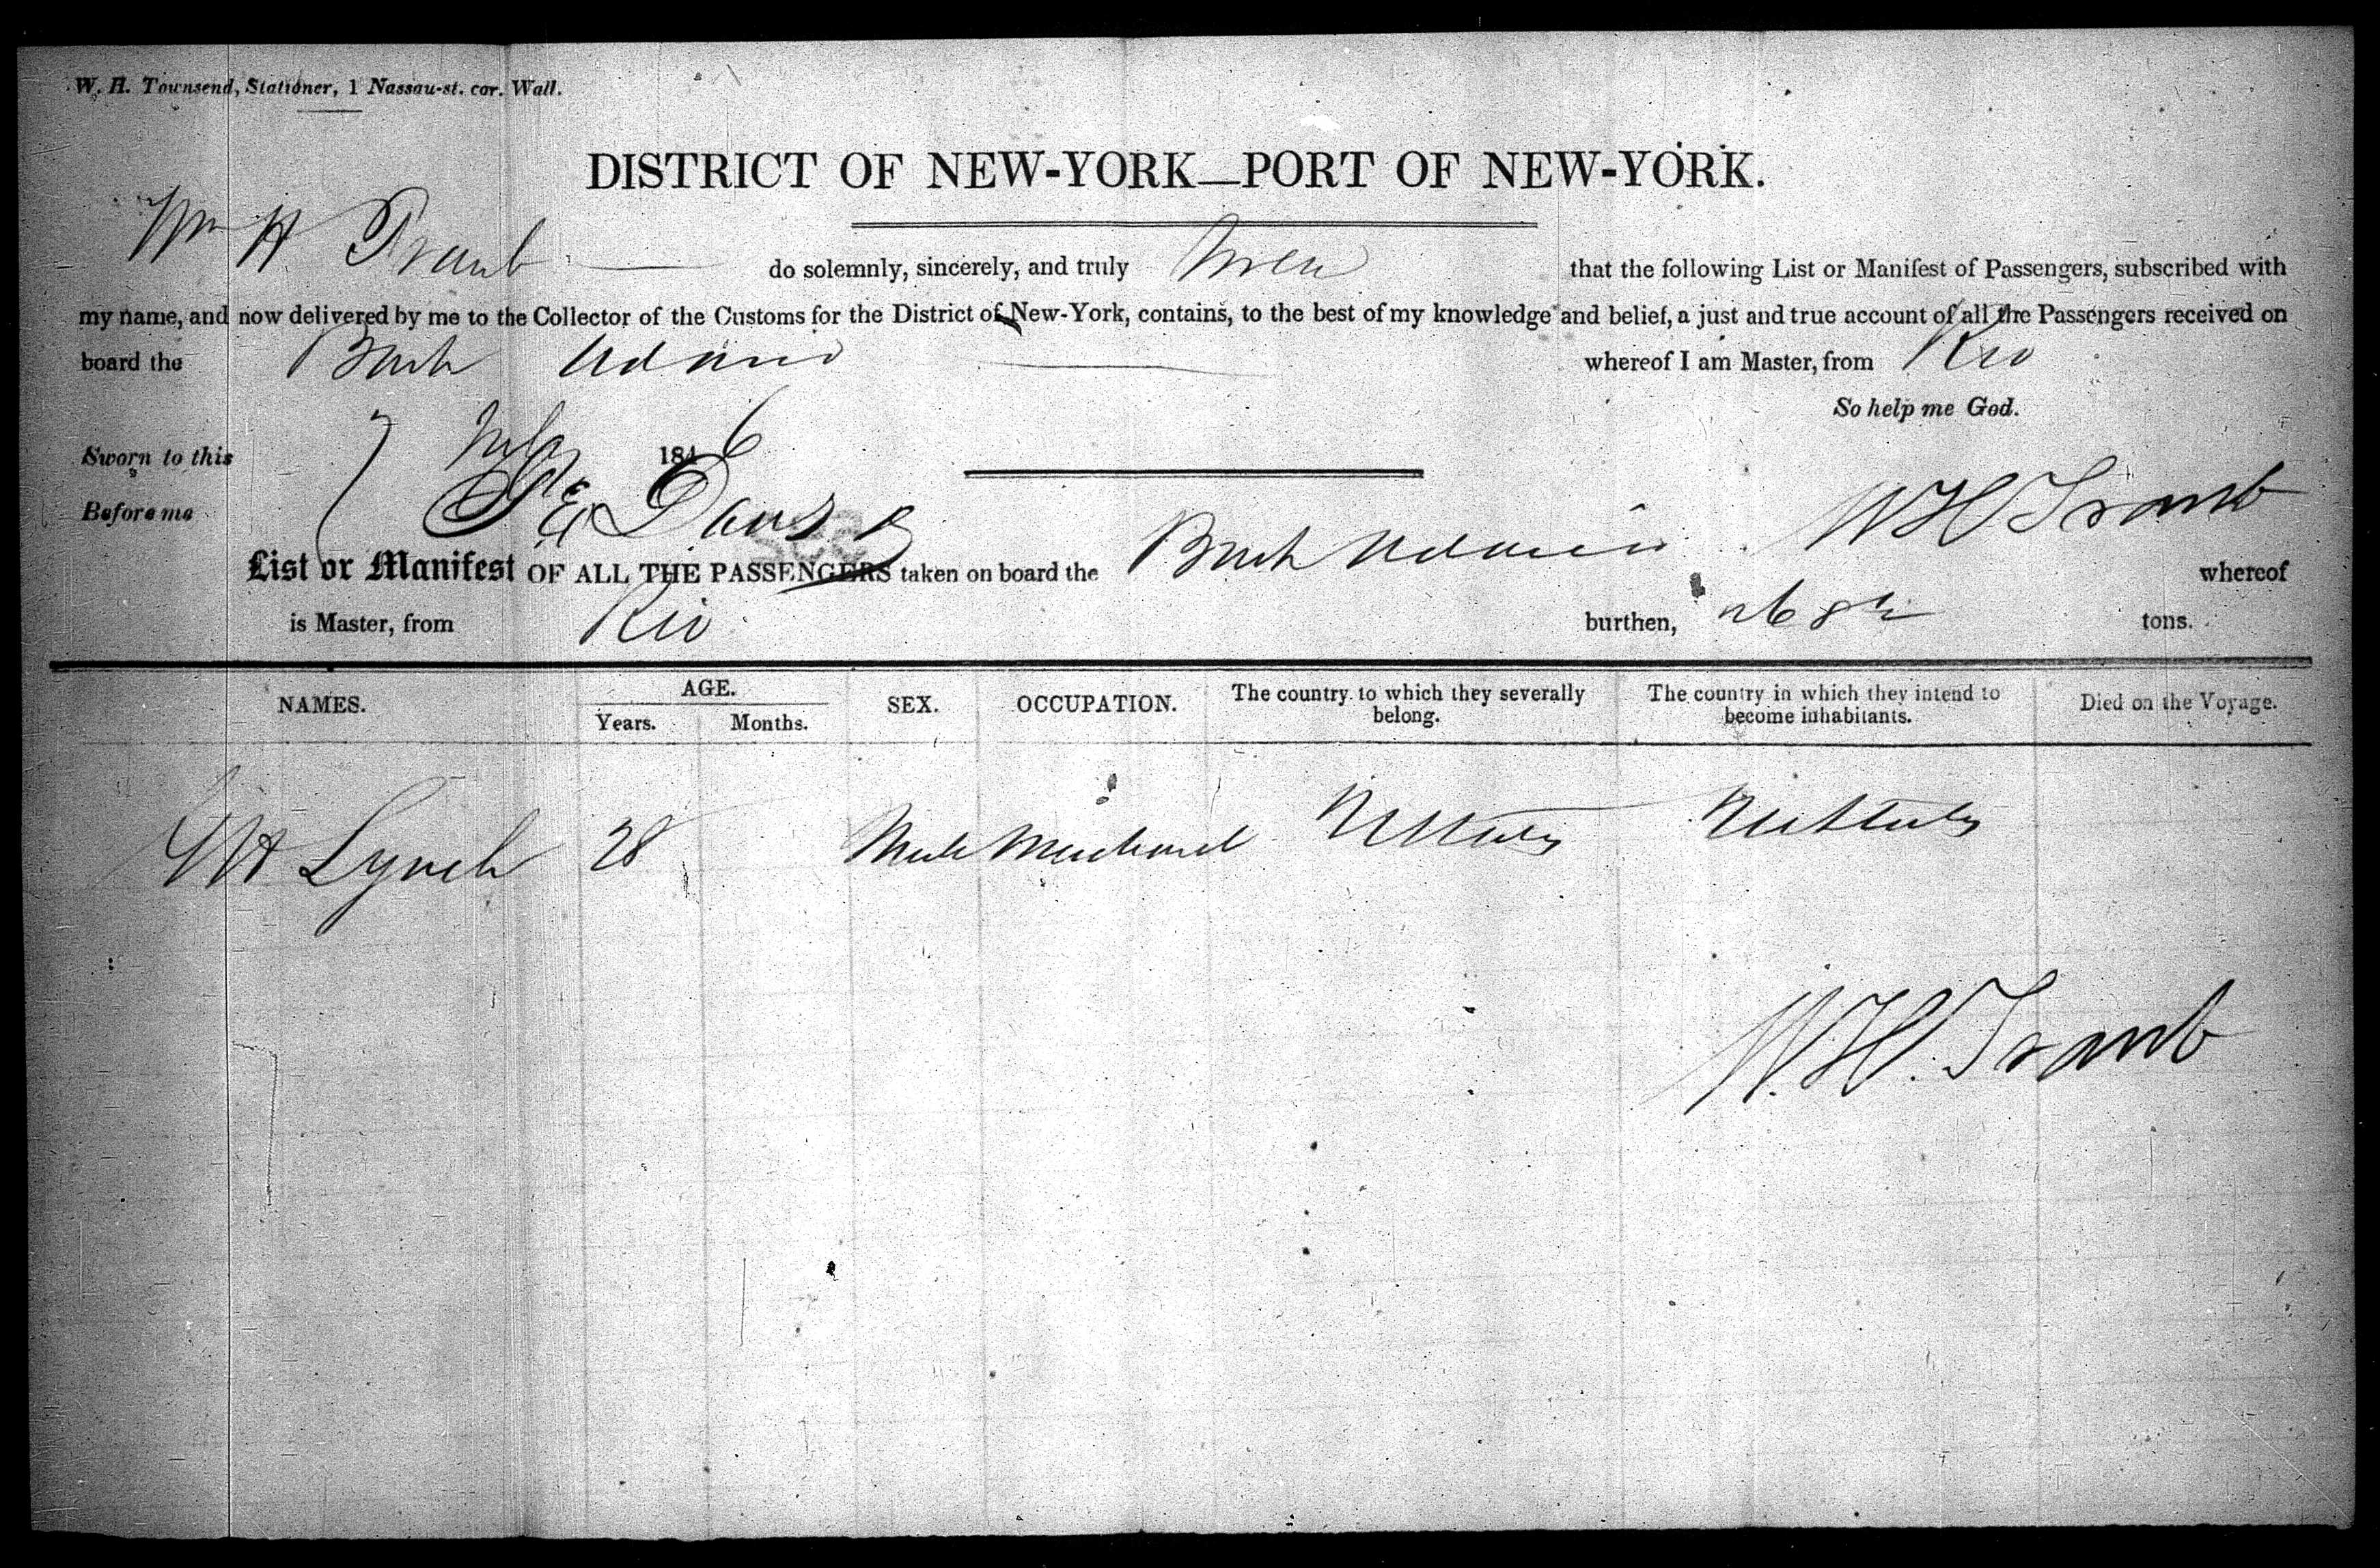 W. H. Townsend, Stationer, 1 Nassau-st. cor. Wall.
DISTRICT OF NEW-YORK—PORT OF NEW-YORK.
Wm H do solemnly, sincerely, and truly that the following List or Manifest of Passengers, subscribed with
my name, and now delivered by me to the Collector of the Customs for the District of New-York, contains, to the best of my knowledge and belief, a just and true account of all the Passengers received on
board the Bark whereof I am Master, from Rio
So help me God.
Sworn to this 1846
Before me
W H
List or Manifest OF ALL THE PASSENGERS taken on board the Bark whereof
is Master, from Rio burthen, tons.
NAMES. AGE. SEX. OCCUPATION. The country to which they severally belong. The country in which they intend to become inhabitants. Died on the Voyage.
Years. Months.
Lynch 28 Male Merchant U States U States
W. H.